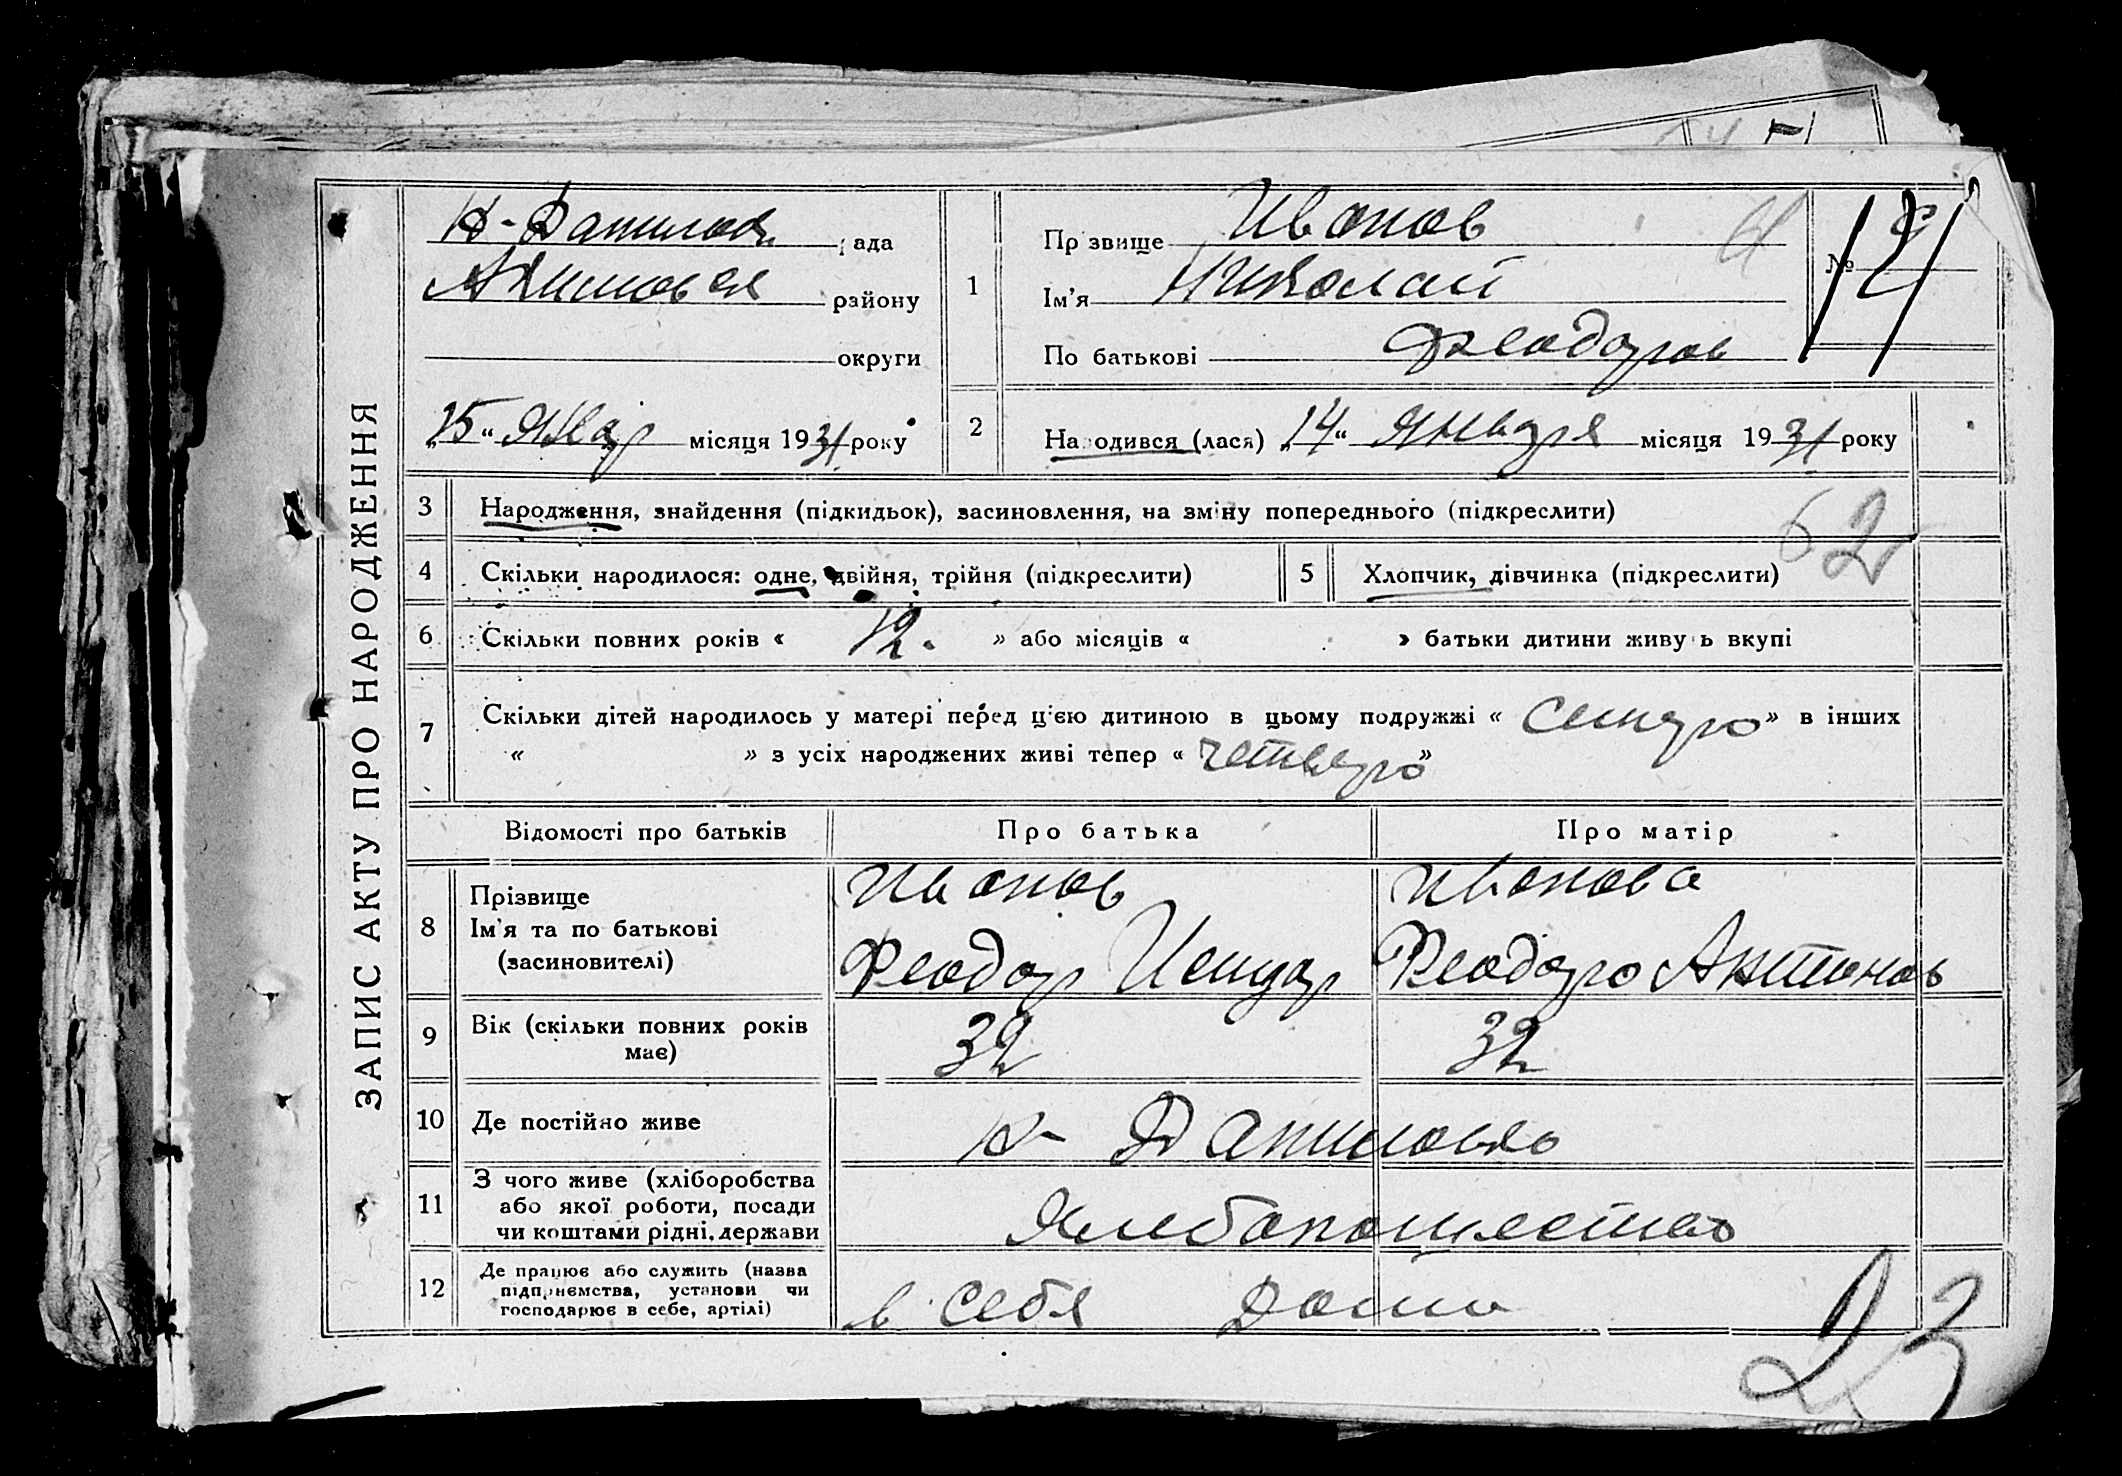 ЗАПИС АКТУ ПРО НАРОДЖЕННЯ
рада
району
округи
„15“ Январ місяця 1931 року
1
Прізвище Иванов
Ім'я Николай
По батькові Феодоров
№
2
Народився (лася) „14“ Января місяця 1931 року
3 Народження, знайдення (підкидьок), засиновлення, на зміну попереднього (підкреслити)
62
4 Скільки народилося: одне, двійня, трійня (підкреслити)
5 Хлопчик, дівчинка (підкреслити)
6 Скільки повних років « 12. » або місяців « » батьки дитини живуть вкупі
7 Скільки дітей народилось у матері перед цією дитиною в цьому подружжі « » в інших
« » з усіх народжених живі тепер « четверо »
Відомості про батьків Про батька Про матір
8 Прізвище
Ім'я та по батькові
(засновителі)
Иванов
Феодор
Иванова
Феодора Антонов
9 Вік (скільки повних років має)
32
32
10 Де постійно живе
К- Даниловка
11 З чого живе (хліборобства
або якої роботи, посади
чи коштами рідні, держави
Хлебопашество
12 Де працює або служить (назва
підприємства, установи чи
господарює в себе, артілі)
в себя Дома
23